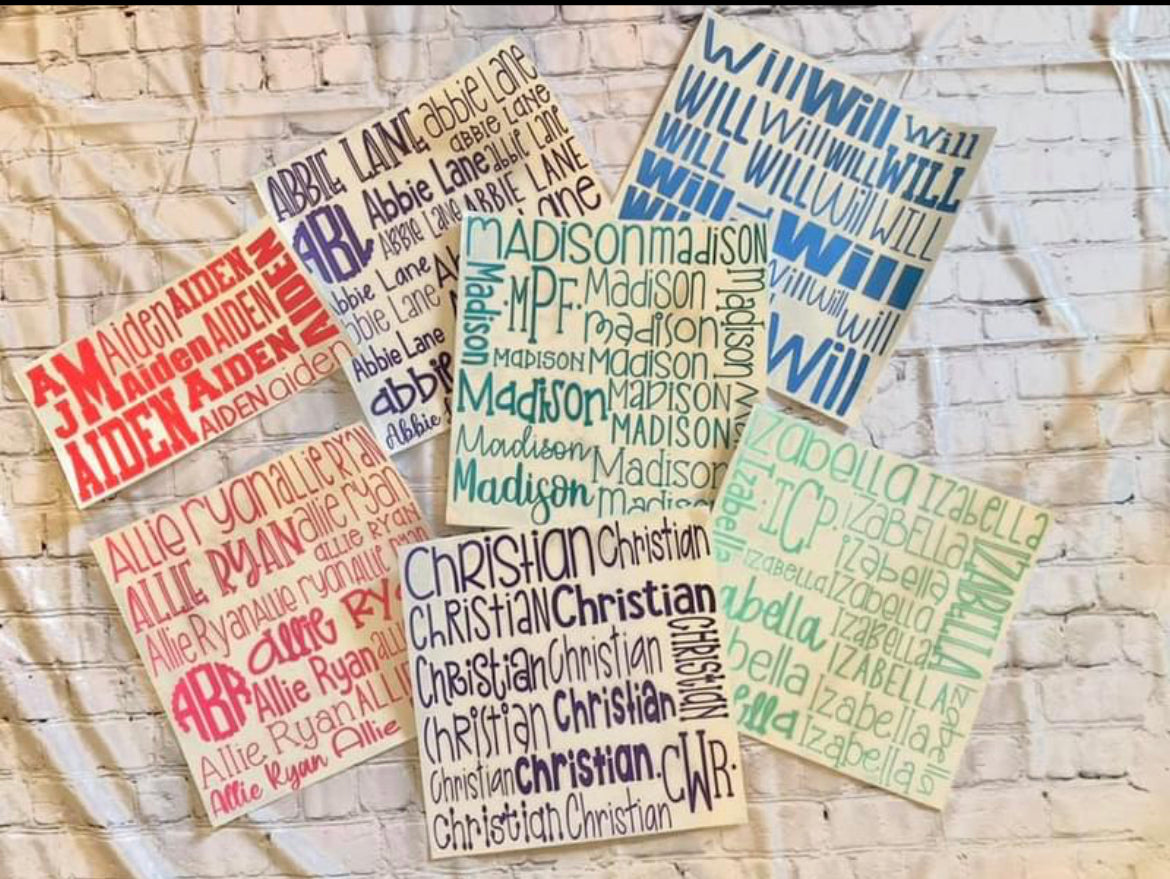 Will Will Will
WILL Will WILL WILL
WILL WILL Will WILL
Will Will
Will
Will Will Will
Will
ABBIE LANE abbie Lane
ABBIE LANE
Abbie Lane abbie Lane
ABL Abbie Lane ABBIE LANE
Lane
Abbie Lane
Abbie Lane
Abbie Lane
abbie
Abbie
AJM Aiden AIDEN
Aiden AIDEN AIDEN
AIDEN AIDEN AIDEN
AIDEN aiden
MADISON madison
Madison MPF Madison madison
madison
MADISON Madison
Madison MADISON
MADISON
Madison Madison
Madison
Allie ryan allie RYAN
ALLIE RYAN allie ryan
allie RYAN
Allie Ryan Allie ryan ALLIE RYAN
allie RY
ABR Allie Ryan alli
Allie Ryan ALLI
Allie Ryan Allie
Christian Christian
CHRISTIAN Christian
Christian Christian CHRISTIAN
Christian Christian
Christian christian CWR
christian Christian
Izabella Izabella
Izabella ICP IZABELLA IZABELLA
izabella
IZABELLA Izabella
abella IZABELLA
bella IZABELLA Izabella
lla Izabella
Izabella